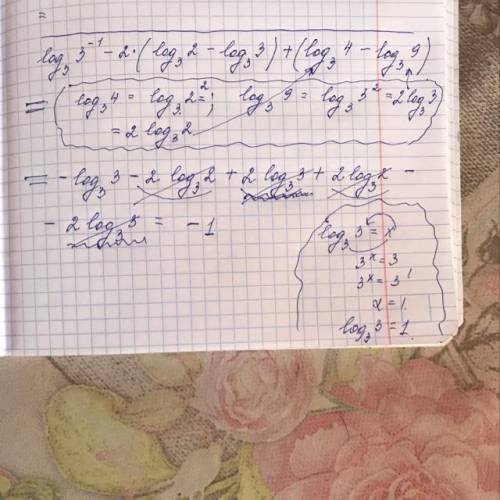 =
log₃ 3⁻¹ - 2·(log₃ 2 - log₃ 3) + (log₃ 4 - log₃ 9)
= (log₃ 4 = log₃ 2² = ; log₃ 9 = log₃ 3² = 2 log₃ 3)
= 2 log₃ 2
= - log₃ 3 - 2 log₃ 2 + 2 log₃ 3 + 2 log₃ 2 -
- 2 log₃ 3 = -1
log₃ 3 = x
3ˣ = 3
3ˣ = 3¹
x = 1.
log₃ 3 = 1.